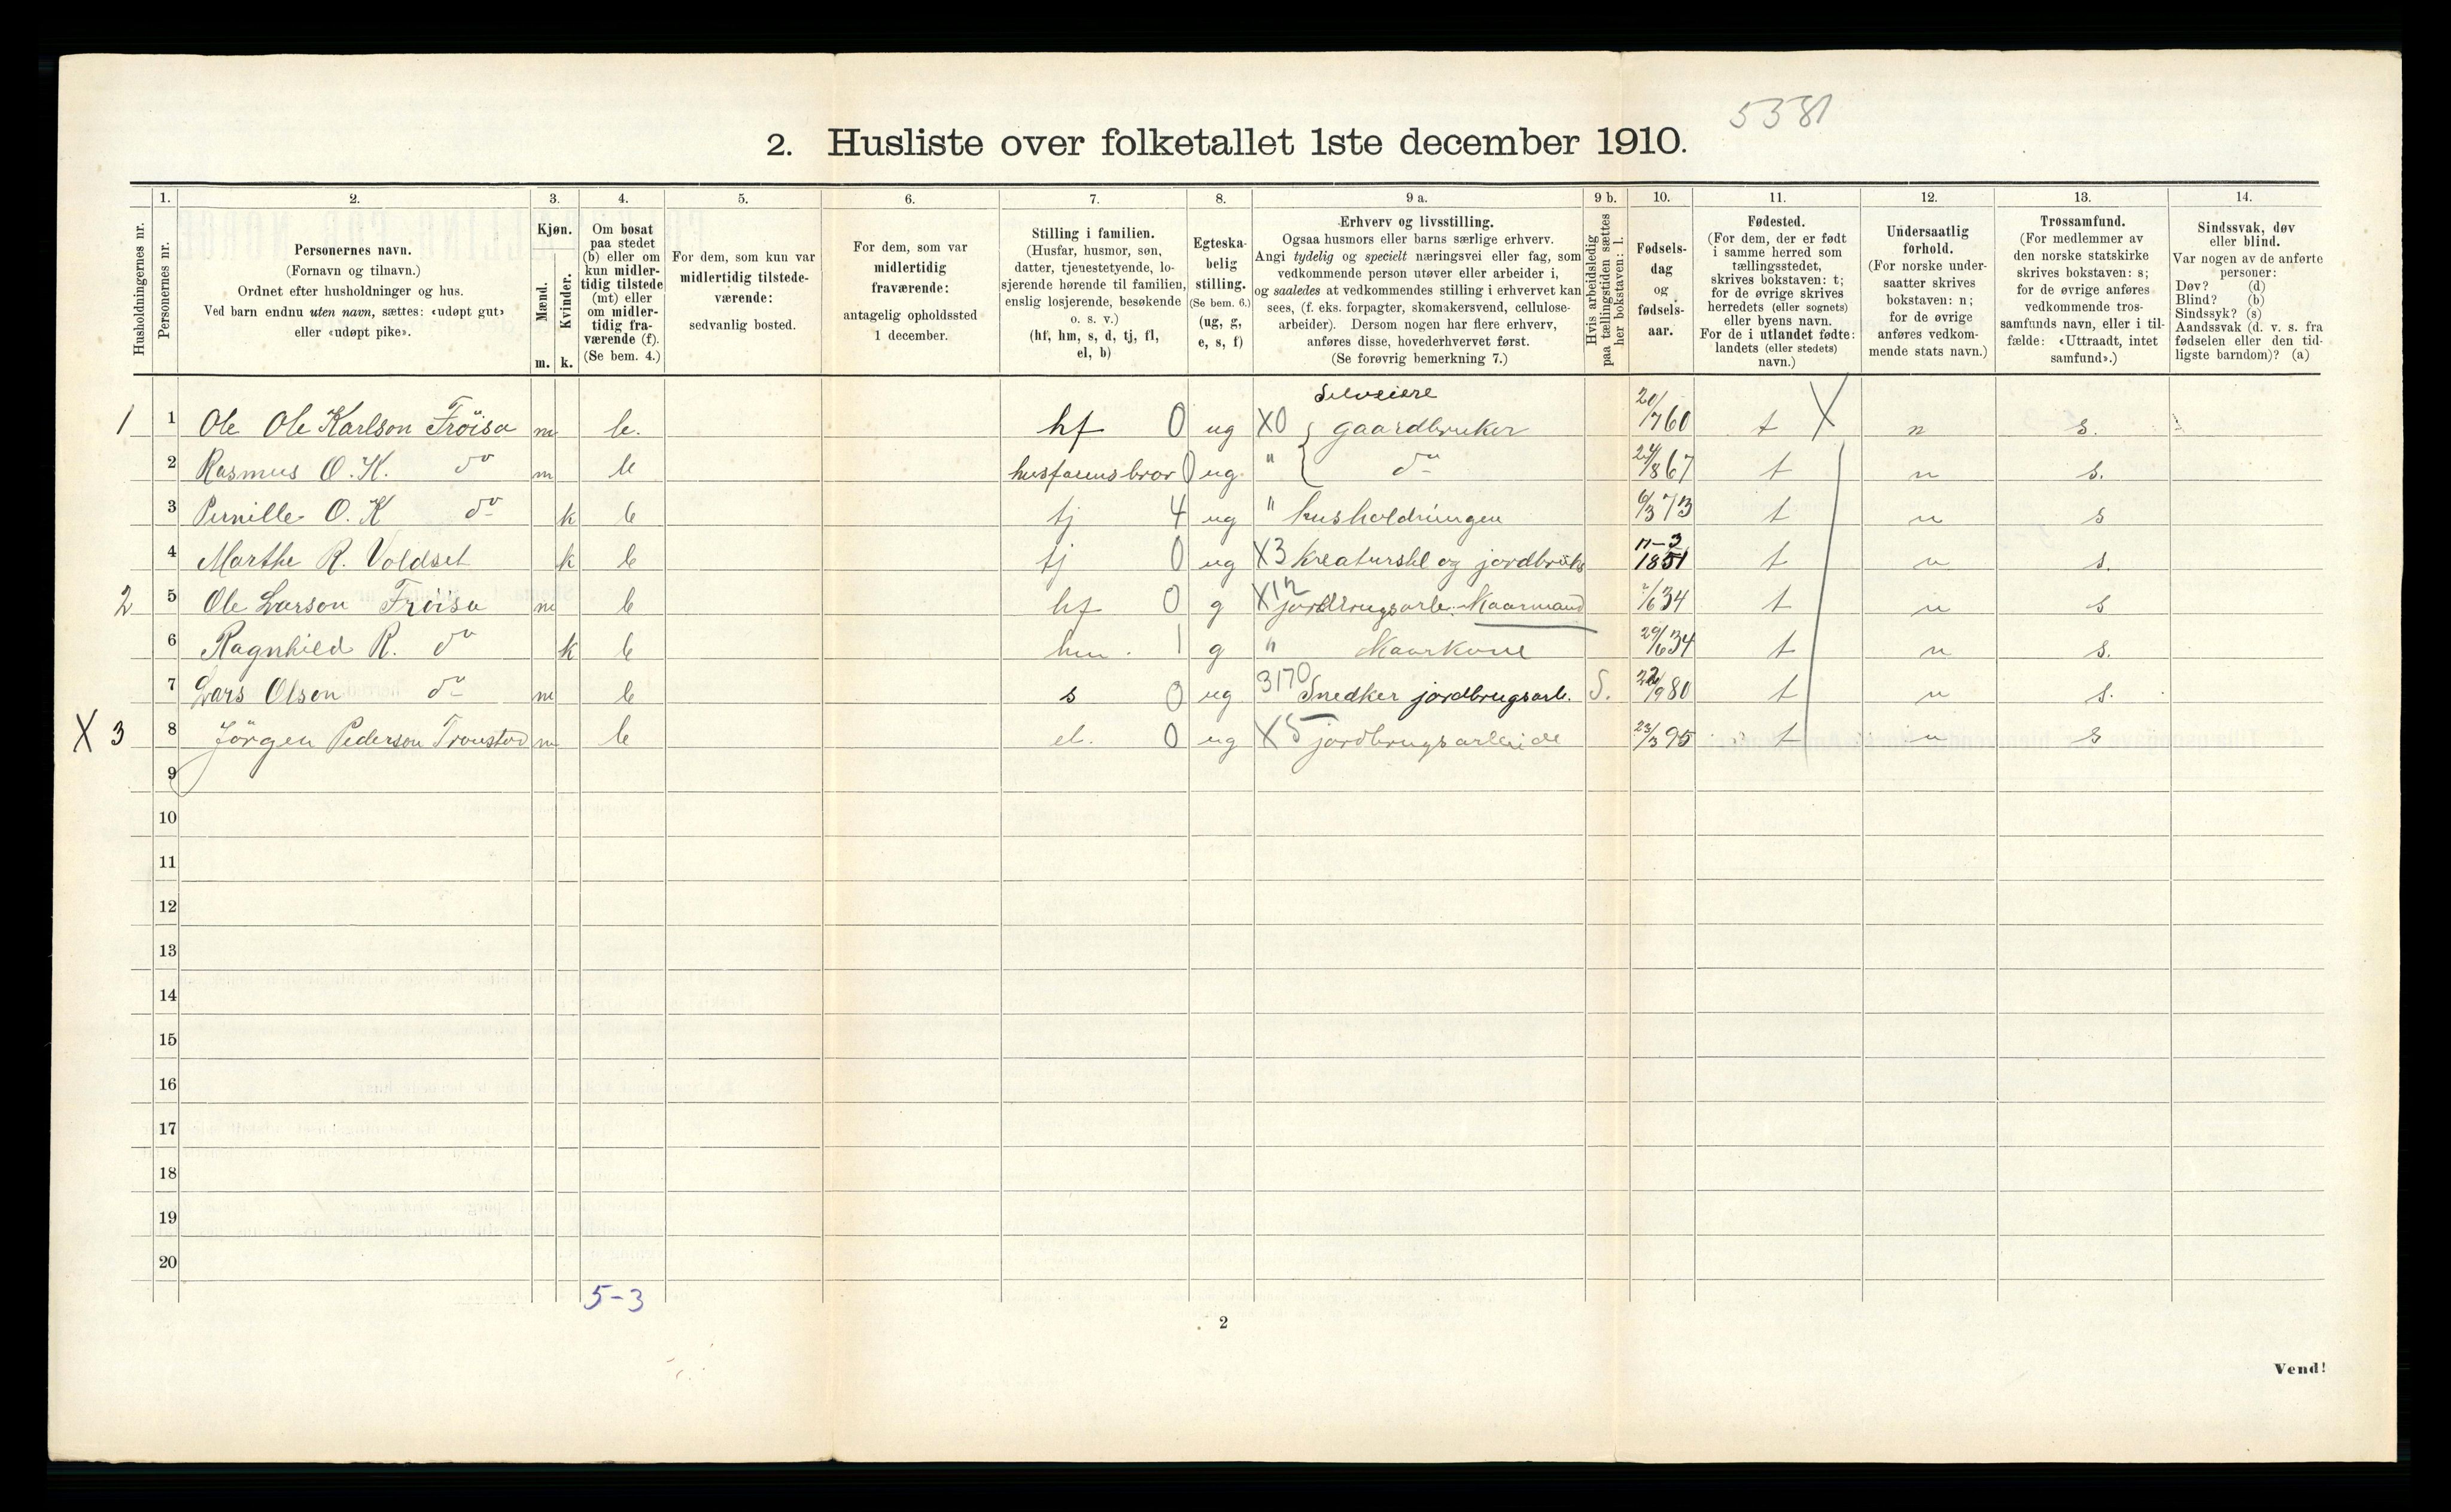 5381
2. Husliste over folketallet 1ste december 1910.
Husholdningernes nr.
1. Personernes nr.
2. Personernes navn.
(Fornavn og tilnavn.)
Ordnet efter husholdninger og hus.
Ved barn endnu uten navn, sættes: «udøpt gut»
eller «udøpt pike».
3. Kjøn.
Mænd. m.
Kvinder. k.
4. Om bosat
paa stedet
(b) eller om
kun midler-
tidig tilstede
(mt) eller
om midler-
tidig fra-
værende (f).
(Se bem. 4.)
5. For dem, som kun var
midlertidig tilstede-
værende:
sedvanlig bosted.
6. For dem, som var
midlertidig
fraværende:
antagelig opholdssted
1 december.
7. Stilling i familien.
(Husfar, husmor, søn,
datter, tjenestetyende, lo-
sjerende hørende til familien,
enslig losjerende, besøkende
o. s. v.)
(hf, hm, s, d, tj, fl,
el, b)
8. Egteska-
belig
stilling.
(Se bem. 6.)
(ug, g,
e, s, f)
9 a. Erhverv og livsstilling.
Ogsaa husmors eller barns særlige erhverv.
Angi tydelig og specielt næringsvei eller fag, som
vedkommende person utøver eller arbeider i,
og saaledes at vedkommendes stilling i erhvervet kan
sees, (f. eks. forpagter, skomakersvend, cellulose-
arbeider). Dersom nogen har flere erhverv,
anføres disse, hovederhvervet først.
(Se forøvrig bemerkning 7.)
9 b. Hvis arbeidsledig
paa tællingstiden sættes
her bokstaven: l.
10. Fødsels-
dag
og
fødsels-
aar.
11. Fødested.
(For dem, der er født
i samme herred som
tællingsstedet,
skrives bokstaven: t;
for de øvrige skrives
herredets (eller sognets)
eller byens navn.
For de i utlandet fødte:
landets (eller stedets)
navn.)
12. Undersaatlig
forhold.
(For norske under-
saatter skrives
bokstaven: n;
for de øvrige
anføres vedkom-
mende stats navn.)
13. Trossamfund.
(For medlemmer av
den norske statskirke
skrives bokstaven: s;
for de øvrige anføres
vedkommende tros-
samfunds navn, eller i til-
fælde: «Uttraadt, intet
samfund».)
14. Sindssvak, døv
eller blind.
Var nogen av de anførte
personer:
Døv? (d)
Blind? (b)
Sindssyk? (s)
Aandssvak (d. v. s. fra
fødselen eller den tid-
ligste barndom)? (a)
Selveiere
1 1 Ole Ole Karlson Fröisa m b. hf 0 ug X0 gaardbruker 20/7 60 t X n s.
2 Rasmus O. K. do m b husfarens bror 0 ug " do 24/8 67 t n s.
3 Pernille O. K do k b tj 4 ug " husholdningen 6/3 73 t n s
4 Marthe R. Voldset k b tj 0 ug X3 kreaturstel og jordbruk 11-3 1851 t n s.
2 5 Ole Larson Fröisa m b hf 0 g X12 jordbrugsarb. Kaarmand /6 34 t n s
6 Ragnhild R. do k b hm. 1 g " Kaarkone 29/6 34 t n s.
7 Lars Olson do m b s 0 ug 3170 Snedker jordbrugsarb. S. /9 80 t n s.
X 3 8 Jörgen Pederson Tronstad m b el. 0 ug X5 jordbrugsarbeide 23/3 95 t n s
9
10
11
12
13
14
15
16
17
18
19
20
5-3
2
Vend!